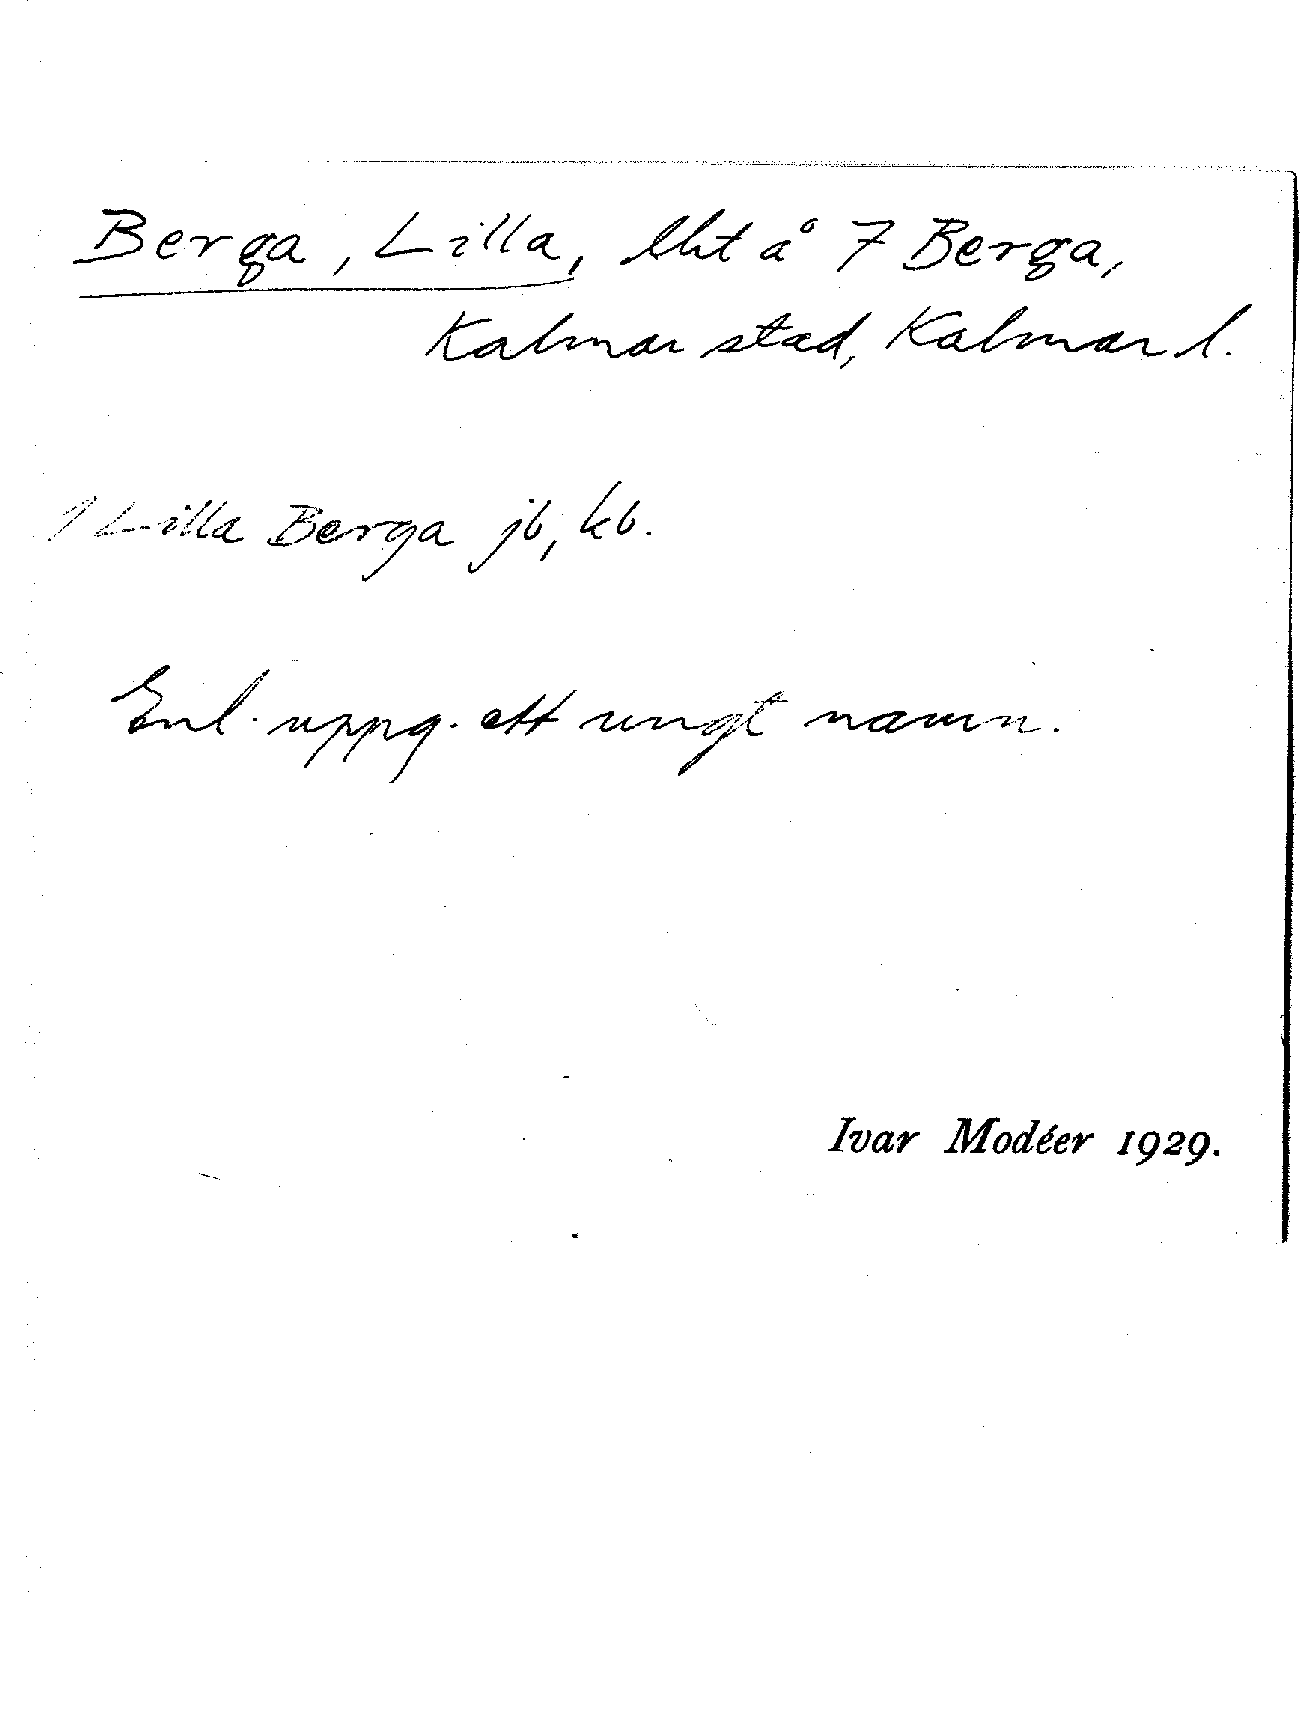 Berga, Lilla, lht å 7 Berga,
Kalmar stad, Kalmar l.
Lilla Berga jb, kb.
Enl. uppg. ett ungt namn.
Ivar Modéer 1929.